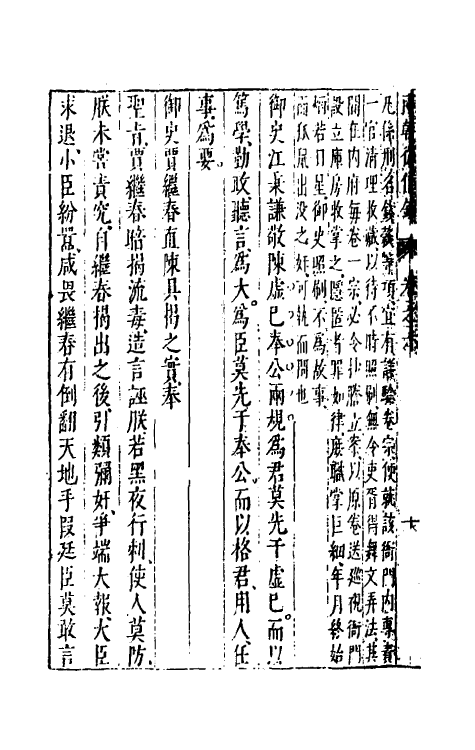 兩朝從信錄
凡係刑名錢穀等項宜有議驗卷宗便就該衙門內專責
一官清理收藏以待不時照刷無令吏胥得舞文弄法其
關在內府每卷一宗必令抄謄立案以原卷送巡視衙門
設立庫房收掌之隱匿者罪如律庶職掌巨細年月終始
炳若日星御史照刷不為故事
而狐鼠出沒之奸可執而問也
御史江秉謙敬陳虛已奉公兩規為君莫先于虛已而以
篤學勤政聽言為大為臣莫先于奉公而以格君用人任
事為要
御史賈繼春直陳具揭之實奉
聖旨賈繼春暗揭流毒造言誣朕若黑夜行刺使人莫防
朕未嘗責究自繼春揭出之後引類彌奸爭端大報大臣
求退小臣紛囂咸畏繼春有倒翻天地手段廷臣莫敢言